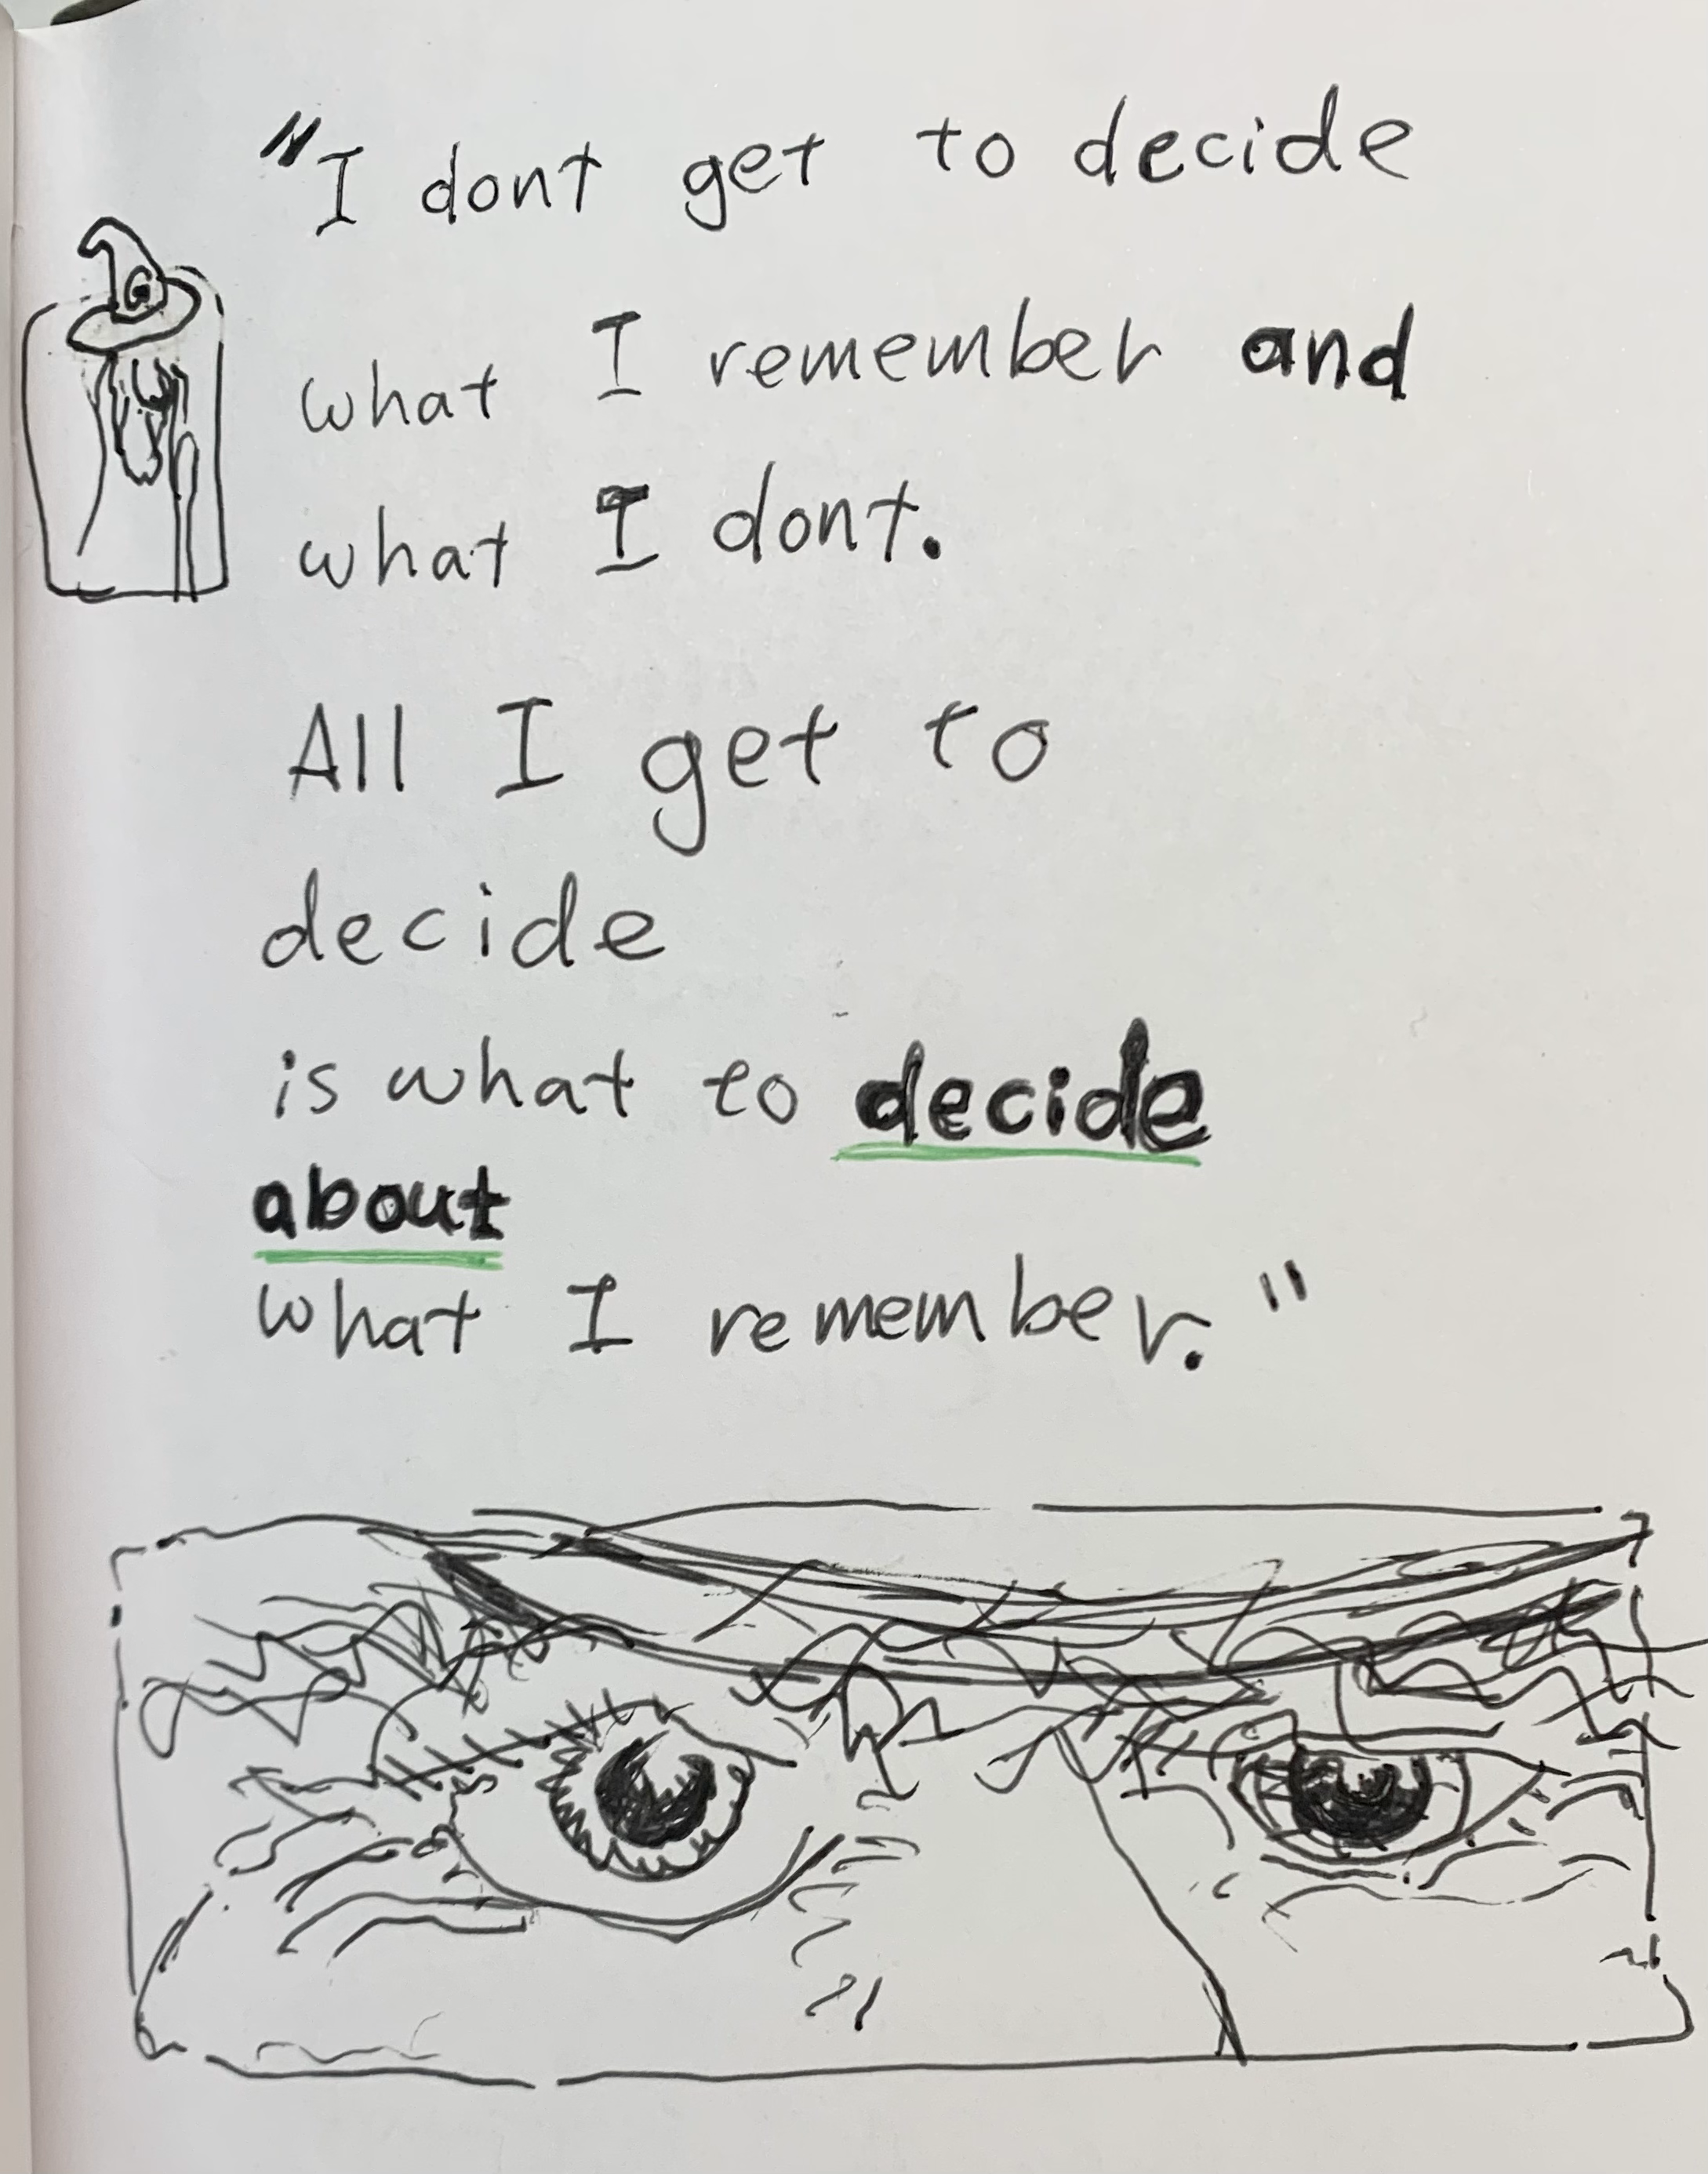 "I dont get to decide
what I remember and
what I dont.
All I get to
decide
is what to decide
about
what I remember."
G